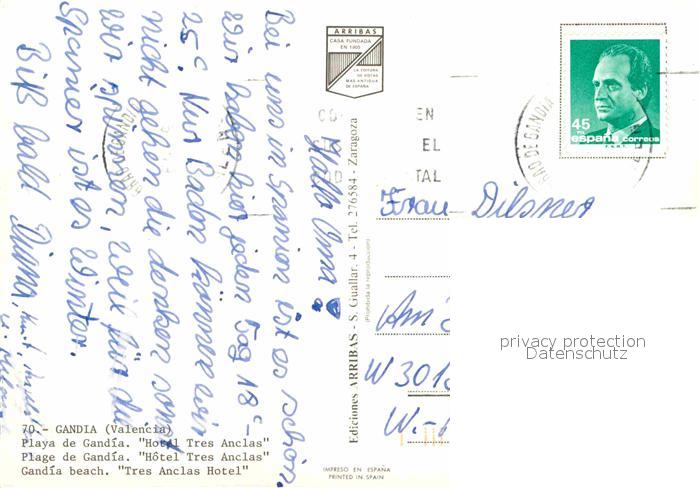 Hallo Oma!
Bei uns in Spanien ist es schön.
Wir haben hier jeden Tag 18°-
25°. Nur Baden können wir
nicht gehen die denken sonst
wir spinnen, weil für die
Spanier ist es Winter.
Biß bald
ARRIBAS
CASA FUNDADA
EN 1905
LA EDITORA
DE VISTAS
MAS ANTIGUA
DE ESPAÑA
45
PTA
españa correos
GRAO DE GANDIA
EN
EL
TAL
Frau Dilsner
W 301
W.-
privacy protection
Datenschutz
Ediciones ARRIBAS - S. Guallar, 4 - Tel. 276584 - Zaragoza
(Prohibida la reproducción)
70.- GANDIA (Valencia)
Playa de Gandía. "Hotel Tres Anclas"
Plage de Gandía. "Hôtel Tres Anclas"
Gandía beach. "Tres Anclas Hotel"
IMPRESO EN ESPAÑA
PRINTED IN SPAIN